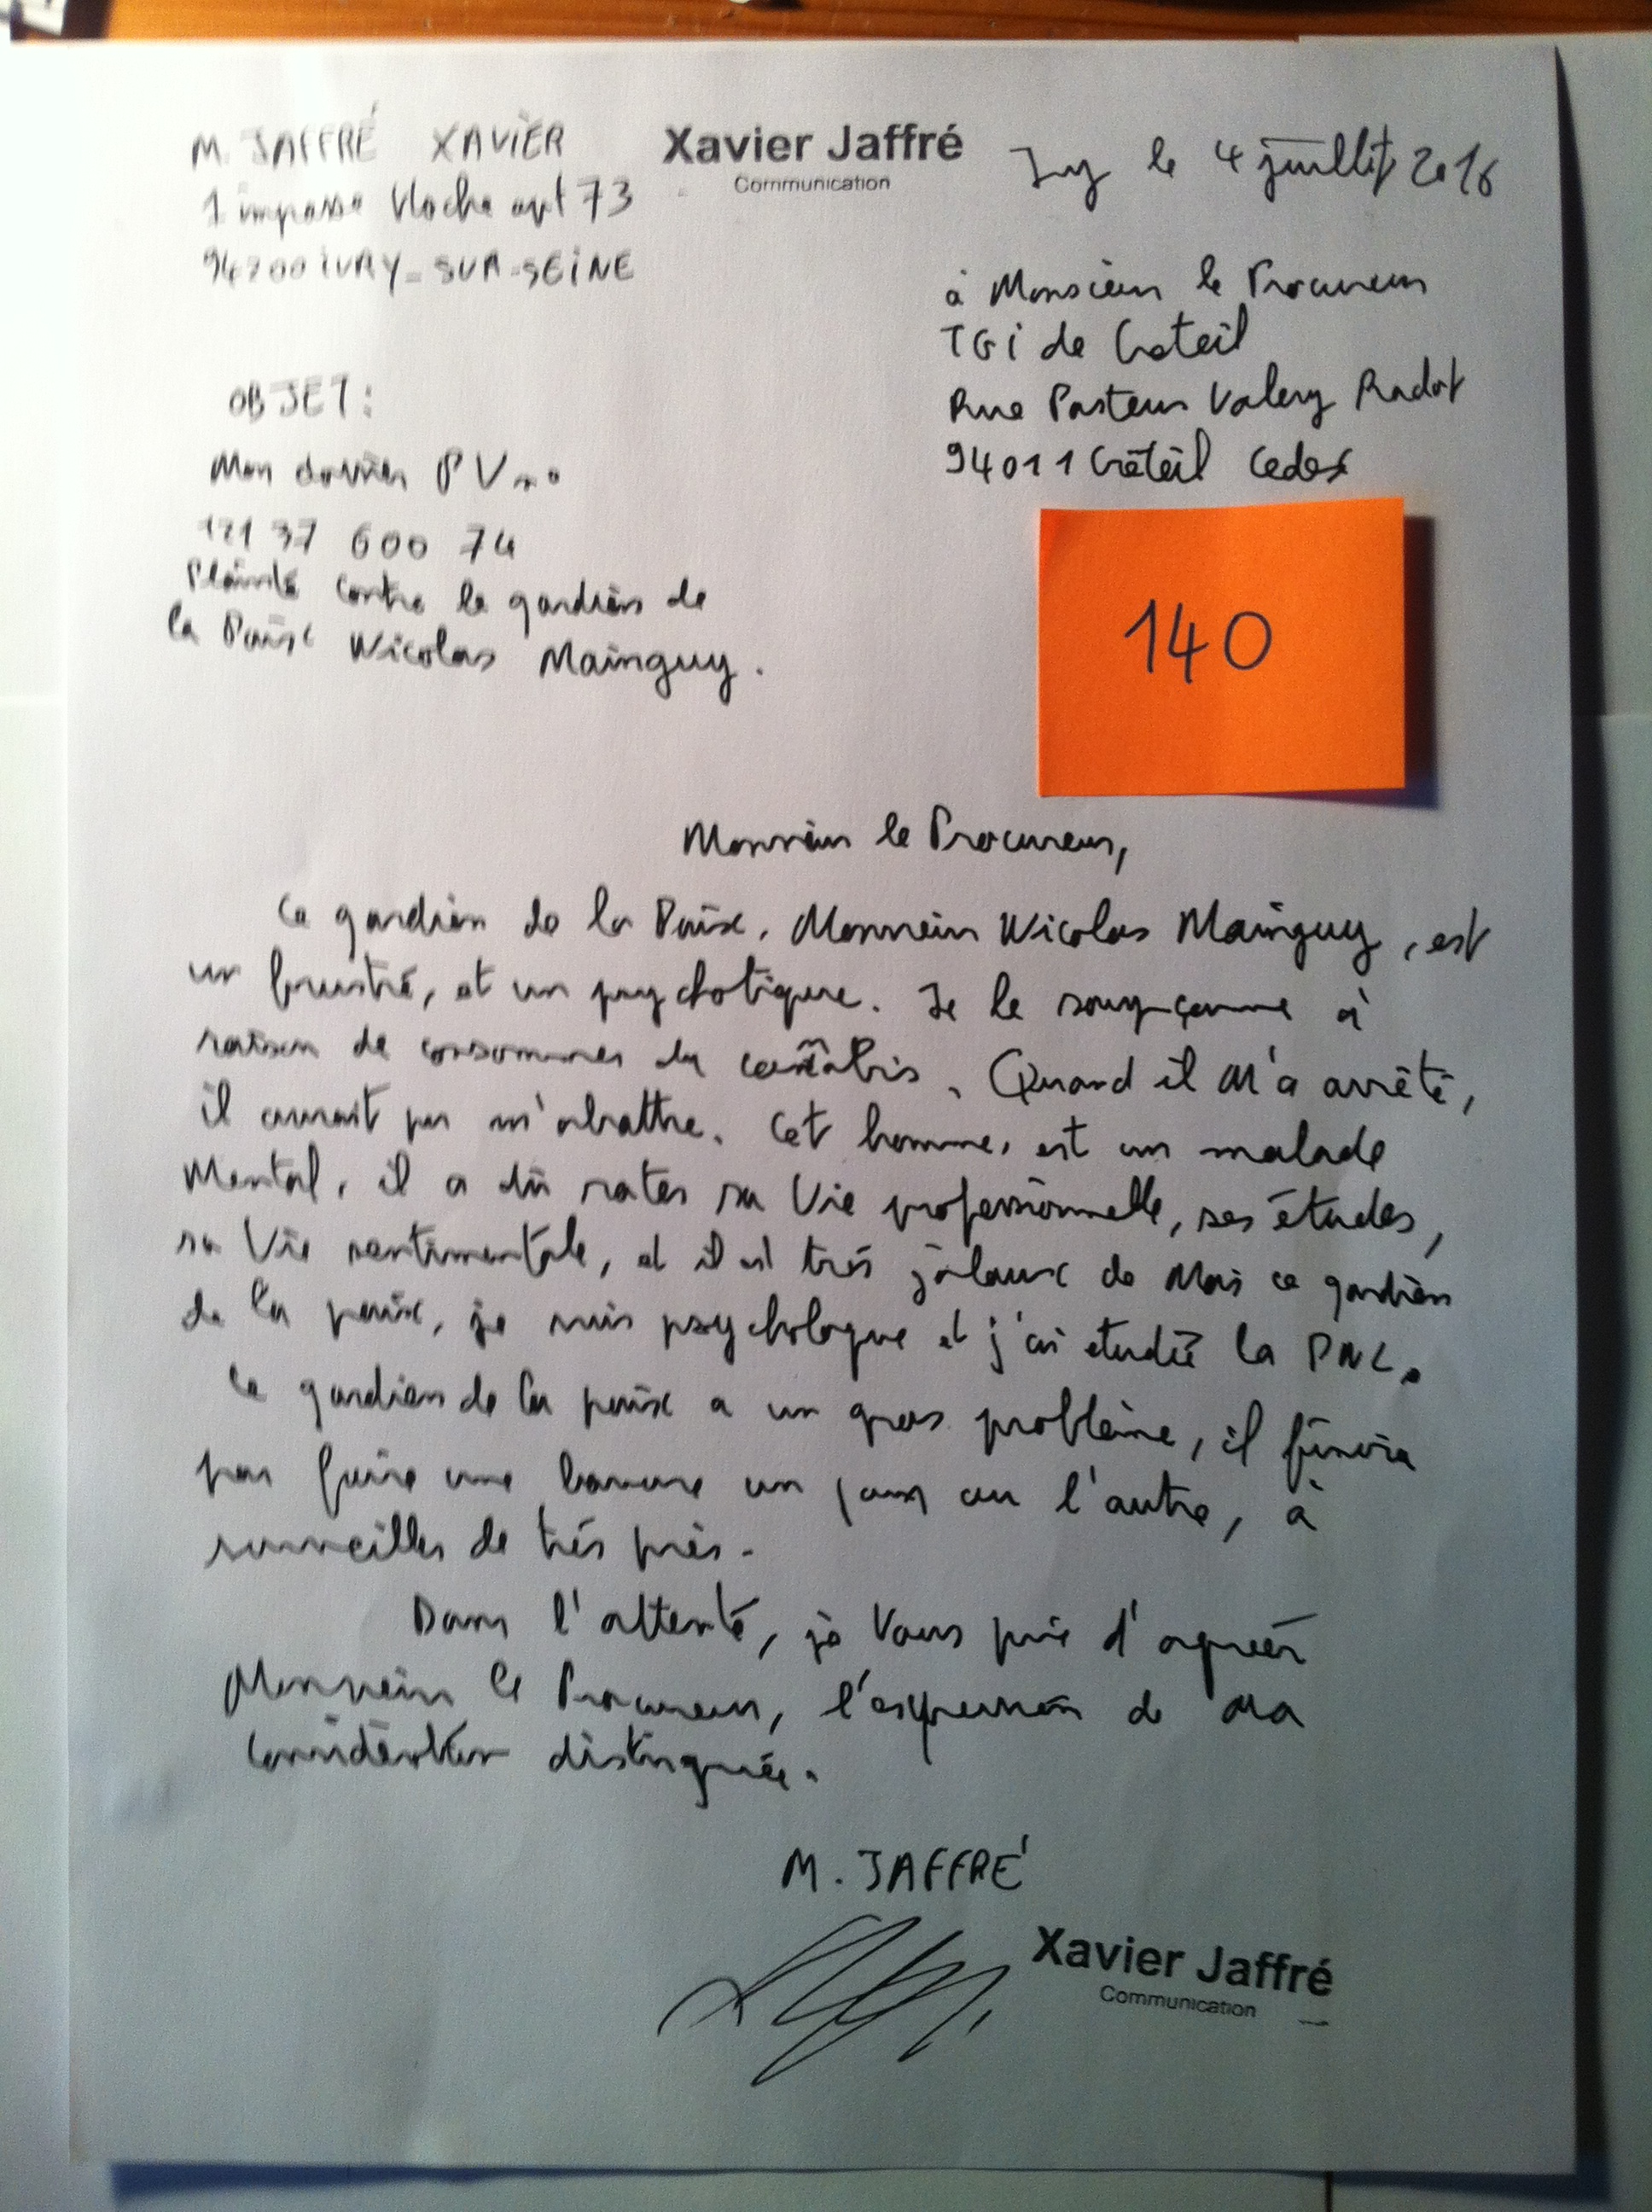 M. JAFFRÉ XAVIER
1 impasse Vloche apt 73
94200 IVRY-SUR-SEINE
Xavier Jaffré
Communication
Ivry le 4 juillet 2016
à Monsieur le Procureur
TGI de Créteil
Rue Pasteur Valery Radot
94011 Créteil Cedex
OBJET:
Mon dossier PV n°
121 37 600 74
Plainte contre le gardien de
la Paix Nicolas Mainguy.
140
Monsieur le Procureur,
Ce gardien de la Paix, Monsieur Nicolas Mainguy, est
un frustré, et un psychotique. Je le soupçonne à
raison de consommer du cannabis. Quand il m'a arrêté,
il aurait pu m'abattre. Cet homme, est un malade
Mental, il a dû rater sa Vie professionnelle, ses études,
sa Vie sentimentale, et il est très jaloux de Moi ce gardien
de la paix, je suis psychologue et j'ai étudié la PNL.
Ce gardien de la paix a un gros problème, il finira
par faire une bavure un jour ou l'autre, à
surveiller de très près.
Dans l'attente, je Vous prie d'agréer
Monsieur le Procureur, l'expression de ma
Considération distinguée.
M. JAFFRÉ
Xavier Jaffré
Communication